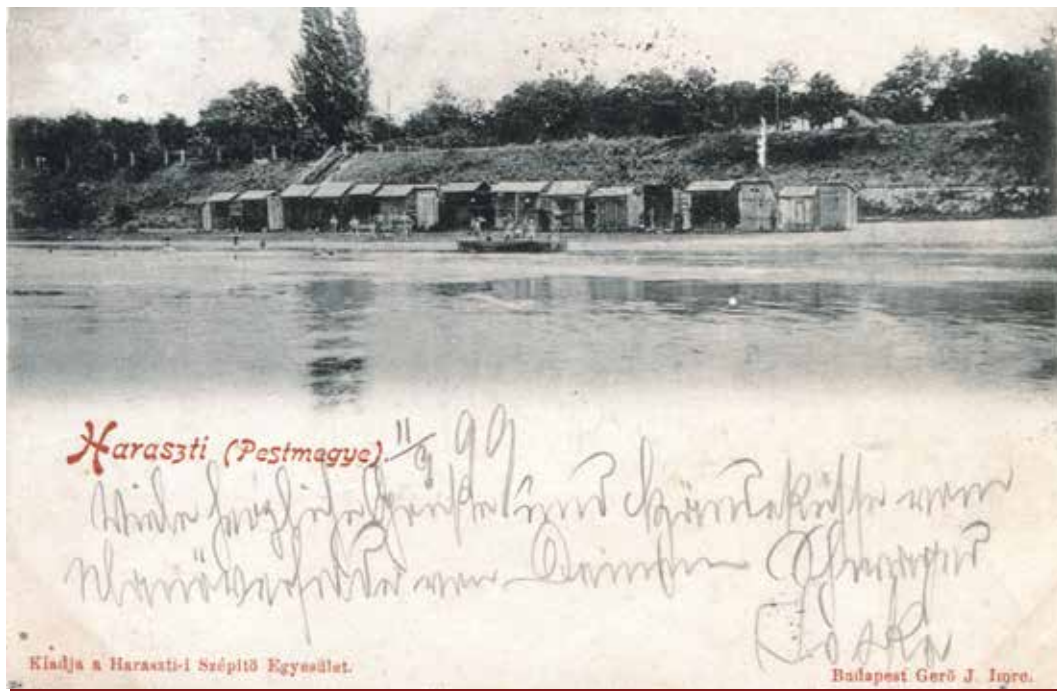 Haraszti (Pestmegye). 11/9 99
Viele herzliche Grüße und Händeküsse vom
Manöverfelde von Deinem Schwager
Kiadja a Haraszti-i Szépitő Egyesület.
Budapest Gerő J. Imre.